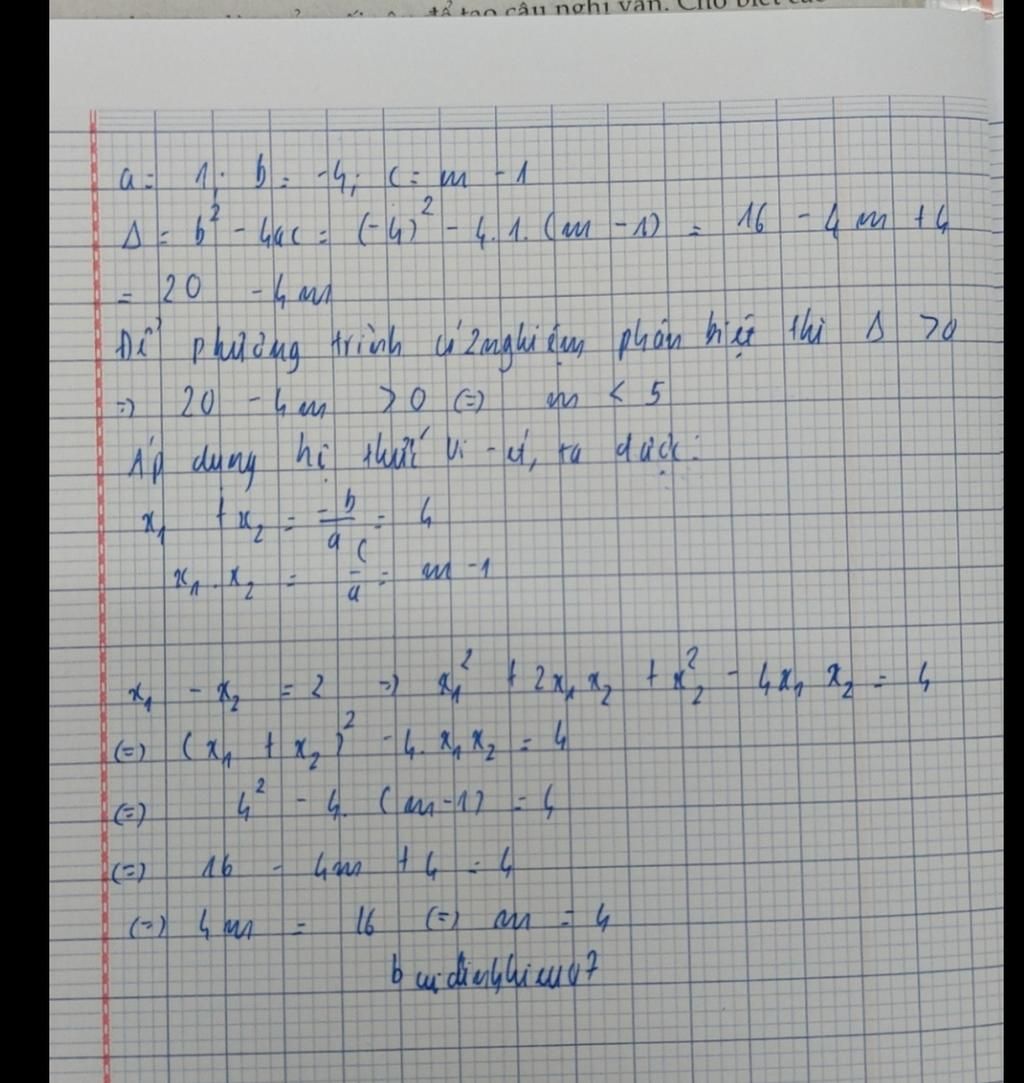 để tạo câu nghi vấn. Cho biết các
a = 1; b = -4; c = m - 1
Δ = b² - 4ac = (-4)² - 4.1.(m - 1) = 16 - 4m + 4
= 20 - 4m
Để phương trình có 2 nghiệm phân biệt thì Δ > 0
=> 20 - 4m > 0 (=) m < 5
Áp dụng hệ thức Vi-ét, ta được:
x₁ + x₂ = -b/a = 4
x₁.x₂ = c/a = m - 1
x₁ - x₂ = 2 => x₁² + 2x₁x₂ + x₂² - 4x₁x₂ = 4
(=) (x₁ + x₂)² - 4.x₁x₂ = 4
(=) 4² - 4.(m-1) = 4
(=) 16 - 4m + 4 = 4
(=) 4m = 16 (=) m = 4